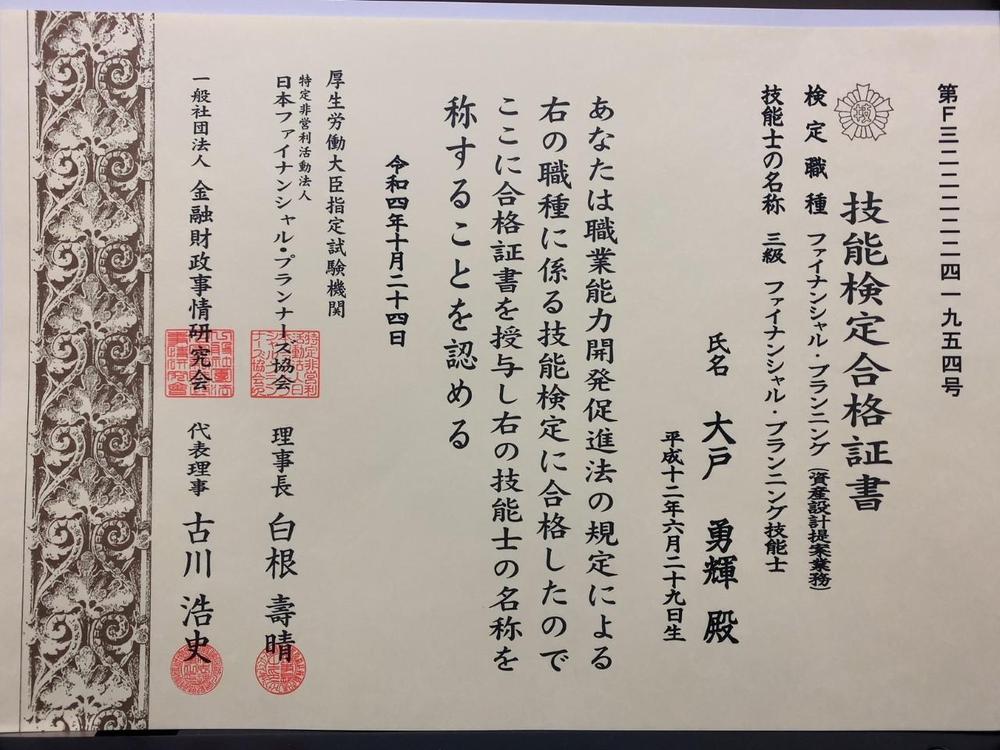 第F三二二二二二四一九五四号
技能検定合格証書
検定職種 ファイナンシャル・プランニング(資産設計提案業務)
技能士の名称 三級 ファイナンシャル・プランニング技能士
氏名 大戸 勇輝 殿
平成十二年六月二十九日生
あなたは職業能力開発促進法の規定による
右の職種に係る技能検定に合格したので
ここに合格証書を授与し右の技能士の名称を
称することを認める
令和四年十月二十四日
厚生労働大臣指定試験機関
特定非営利活動法人
日本ファイナンシャル・プランナーズ協会 理事長 白根 壽晴
一般社団法人 金融財政事情研究会 代表理事 古川 浩史